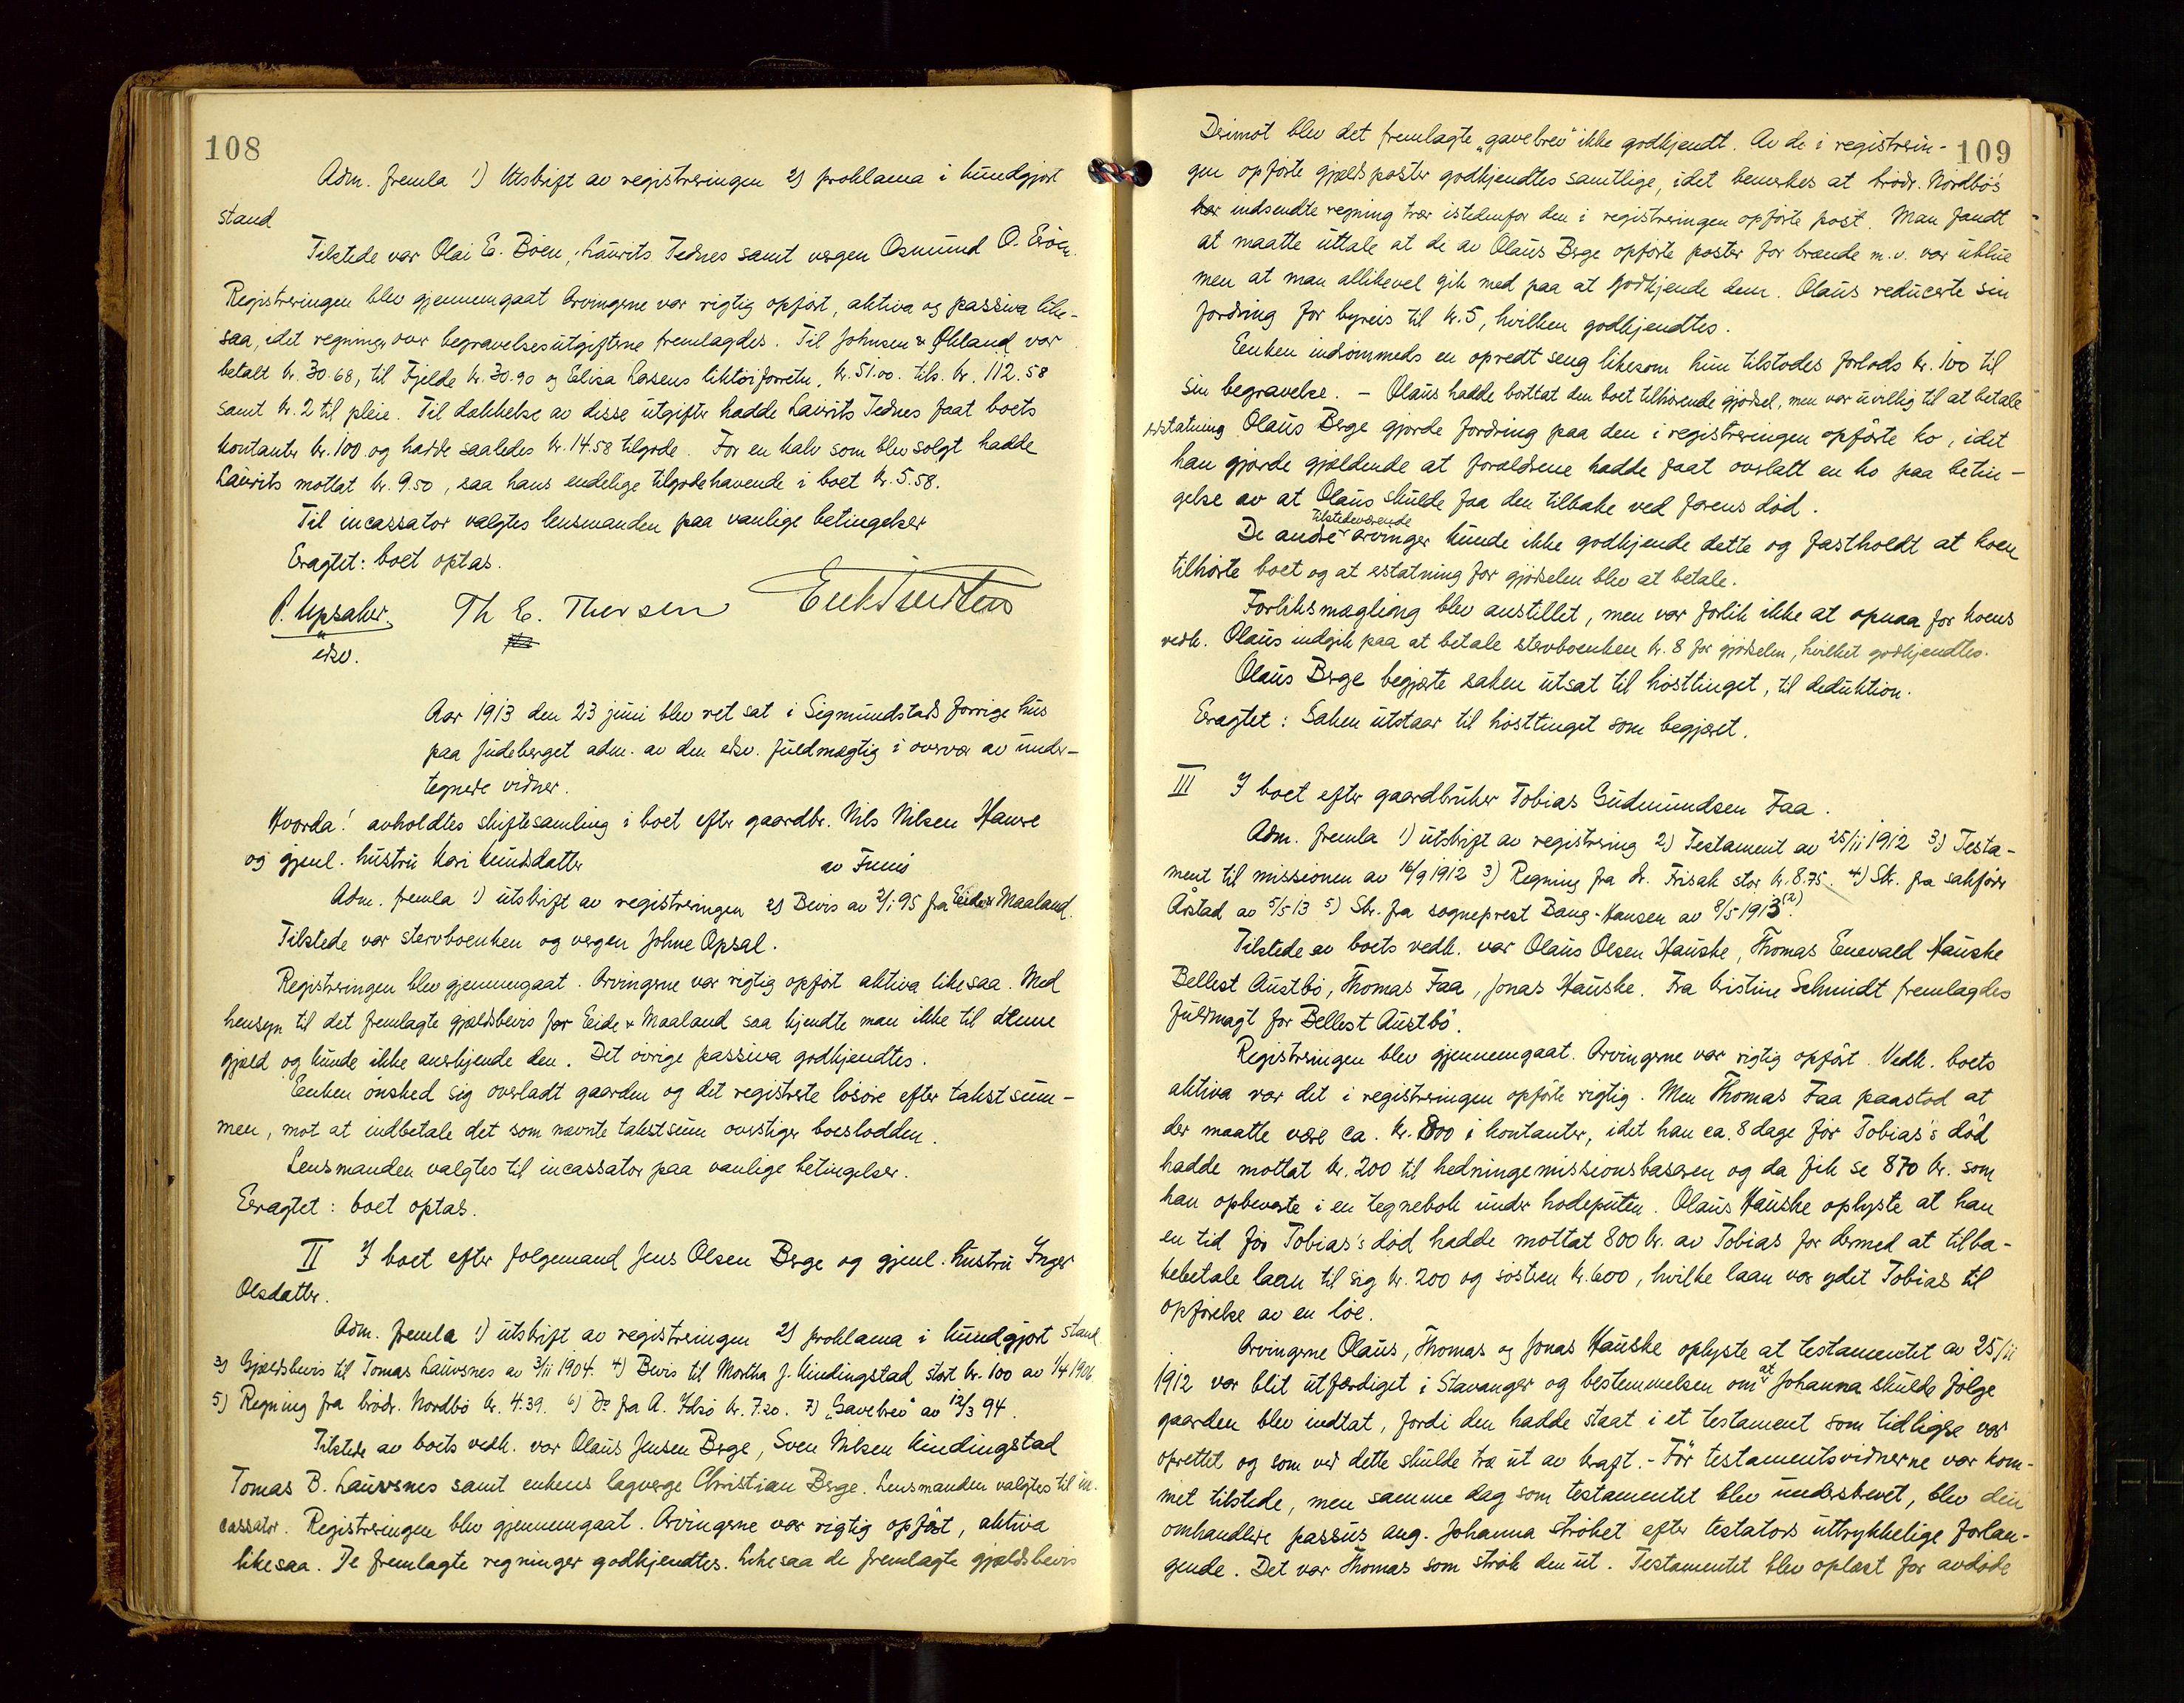 108
Adm. fremla 1) Utskrift av registreringen 2) proklama i kundgjort
stand
Tilstede var Olai E. Böen, Laurits Tednes samt vergen Osmund O.
Registreringen blev gjennemgaat Arvingerne var rigtig opført, aktiva og passiva like-
saa, idet regninger over begravelsesutgifterne fremlagdes. Til Johnsen & Økland var
betalt kr. 30.68, til Fjelde kr. 30.90 og Elisa Lasens liktöiforretn. kr. 51.00. tils. kr. 112.58
samt kr. 2 til pleie. Til dækkelse av disse utgifter hadde Laurits Tednes faat boets
kontanter kr. 100 og hadde saaledes kr. 14.58 tilgode. For en kalv som blev solgt hadde
Laurits mottat kr. 9.50, saa hans endelige tilgodehavende i boet kr. 5.58.
Til incassator valgtes lensmanden paa vanlige betingelser
Eragtet: boet optas.
P. Upsaker. Th E. Thersen
edsv.
Aar 1913 den 23 juni blev ret sat i Sigmundstads forrige hus
paa Judeberget adm. av den edsv. fuldmægtig i overvær av under-
tegnede vidner.
Hvorda! avholdtes skiftesamling i boet efter gaardbr. Nils Nilsen Haure
og gjenl. hustru Kari Knudsdatter av
Adm. fremla 1) utskrift av registreringen 2) Bevis av 2/1 95 fra Eide & Maaland.
Tilstede var stervboenken og vergen Johne Opsal.
Registreringen blev gjennemgaat. Arvingerne var rigtig opført aktiva likesaa. Med
hensyn til det fremlagte gjældsbevis for Eide & Maaland saa kjendte man ikke til denne
gjæld og kunde ikke anerkjende den. Det övrige passiva godkjendtes.
Enken önsked sig overladt gaarden og det registrerte lösöre efter takstsum-
men, mot at indbetale det som nævnte takstsum overstiger boeslodden.
Lensmanden valgtes til incassator paa vanlige betingelser.
Eragtet: boet optas.
II I boet efter folgemand Jens Olsen Berge og gjenl. hustru Inger
Olsdatter.
Adm. fremla 1) utskrift av registreringen 2) proklama i kundgjort stand
3) Gjældsbevis til Tomas Lauvsnes av 3/11 1904. 4) Bevis til Martha J. Kindingstad stort kr. 100 av 1/4 1906.
5) Regning fra brödr. Nordbö kr. 4.39. 6) Do fra A. Idsö kr. 7.20. 7) „Gavebrev" av 12/3 94.
Tilstede av boets vedk. var Olaus Jensen Berge, Sven Nilsen Kindingstad
Tomas B. Lauvsnes samt enkens lagverge Christian Berge. Lensmanden valgtes til in-
cassator. Registreringen blev gjennemgaat. Arvingerne var rigtig opført, aktiva
likesaa. De fremlagte regninger godkjendtes. Likesaa de fremlagte gjældsbevis
109
Derimot blev det fremlagte „gavebrev" ikke godkjendt. Av de i registrerin-
gen opförte gjældsposter godkjendtes samtlige, idet bemerkes at brödr. Nordbö's
her indsendte regning trær istedenfor den i registreringen opförte post. Man fandt
at maatte uttale at de av Olaus Berge opförte poster for brænde m.v. var ublue
men at man allikevel gik med paa at godkjende dem. Olaus reducerte sin
fordring for byreis til kr. 5, hvilken godkjendtes.
Enken indrömmeds en opredt seng likesom hun tilstodes forlods kr. 100 til
sin begravelse. - Olaus hadde borttat den boet tilhörende gjödsel, men var uvillig til at betale
erstatning Olaus Berge gjorde fordring paa den i registreringen opförte ko, idet
han gjorde gjældende at forældrene hadde faat overlatt en ko paa betin-
gelse av at Olaus skulde faa den tilbake ved farens död.
tilstedeværende
De andre arvinger kunde ikke godkjende dette og fastholdt at koen
tilhörte boet og at erstatning for gjödselen blev at betale.
Forliksmægling blev anstillet, men var forlik ikke at opnaa for koens
vedk. Olaus indgik paa at betale stervboenken kr. 8 for gjödselen, hvilket godkjendtes.
Olaus Berge begjærte saken utsat til hösttinget, til deduktion.
Eragtet: Saken utstaar til hösttinget som begjæret.
III I boet efter gaardbruker Tobias Gudmundsen Faa.
Adm. fremla 1) utskrift av registrering 2) Testament av 25/11 1912 3) Testa-
ment til missionen av 16/9 1912 3) Regning fra dr. Frisak stor kr. 8.75. 4) Skr. fra sakförer
Årstad av 5/5 13 5) Skr. fra sogneprest Bang-Hansen av 8/5 1913 (2)
Tilstede av boets vedk. var Olaus Olsen Hauske, Thomas Enevald Hauske
Bellest Austbö, Thomas Faa, Jonas Hauske. Fra Kristine Schmidt fremlagdes
fuldmagt for Bellest Austbö.
Registreringen blev gjennemgaat. Arvingerne var rigtig opfört. Vedk. boets
aktiva var det i registreringen opförte rigtig. Men Thomas Faa paastod at
der maatte være ca. kr. 800 i kontanter, idet han ca. 8 dage för Tobias's död
hadde mottat kr. 200 til hedningemissionsbasaren og da fik se 870 kr. som
han opbevarte i en tegnebok under hodeputen. Olaus Hauske oplyste at han
en tid för Tobias's död hadde mottat 800 kr. av Tobias for dermed at tilba-
kebetale laan til sig kr. 200 og söstren kr. 600, hvilke laan var ydet Tobias til
opförelse av en löe.
Arvingerne Olaus, Thomas og Jonas Hauske oplyste at testamentet av 25/11
1912 var blit utfærdiget i Stavanger og bestemmelsen om at Johanna skulde fölge
gaarden blev indtat, fordi den hadde staat i et testament som tidligere var
oprettet og som ved dette skulde træ ut av kraft. - För testamentsvidnerne var kom-
met tilstede, men samme dag som testamentet blev underskrevet, blev den
omhandlere passus ang. Johanna ströket efter testators uttrykkelige forlan-
gende. Det var Thomas som strök den ut. Testamentet blev oplæst for avdöde